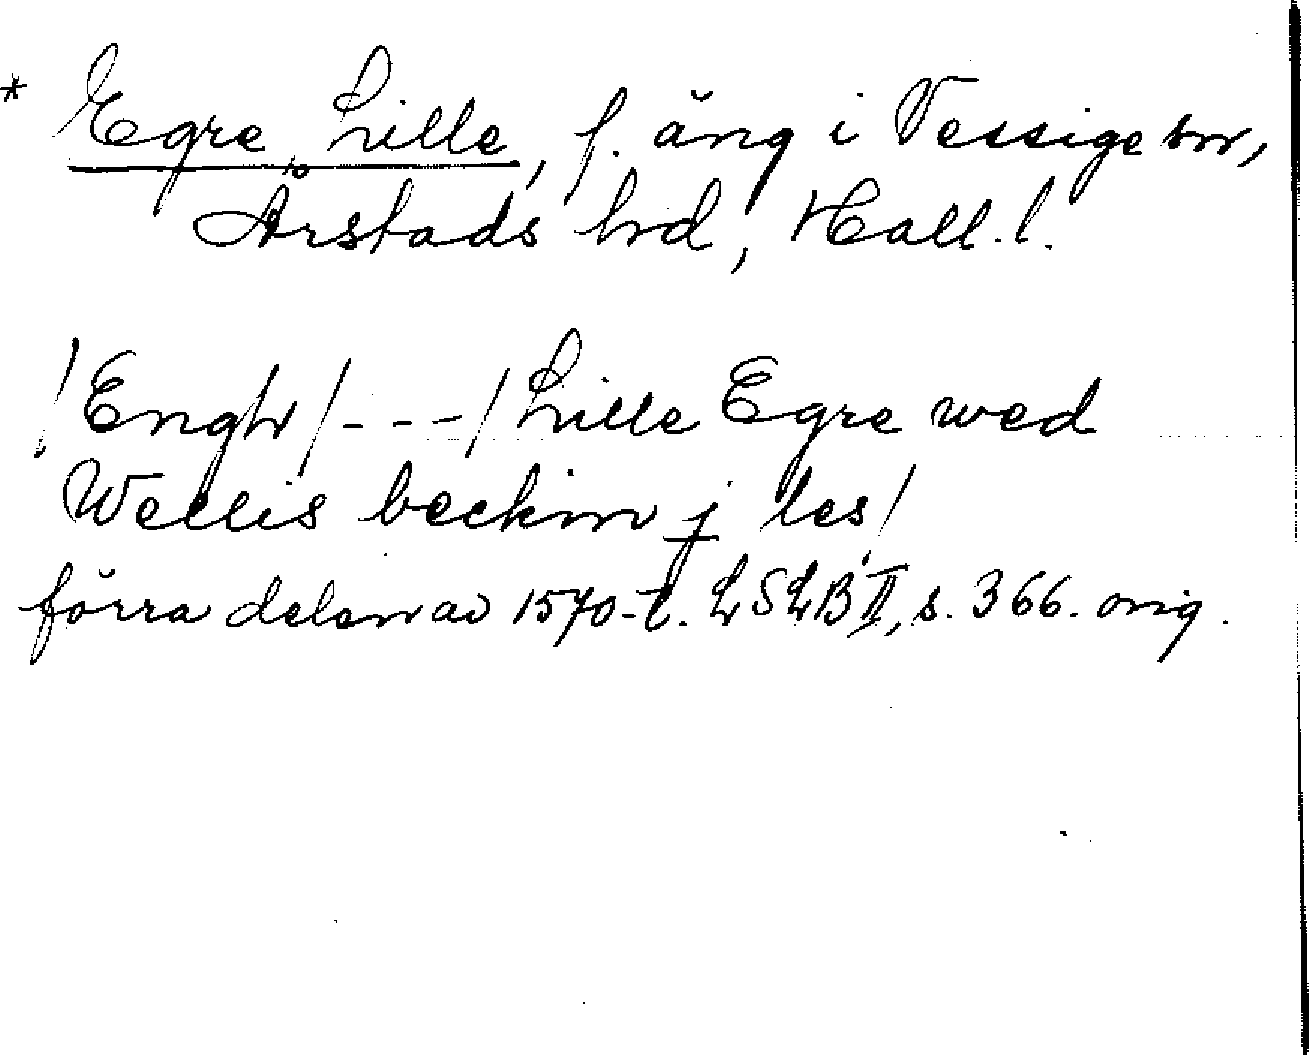 * Egre, Lille, f. äng i Vessige sn,
Årstads hd, Hall. l.
/Engh/ - - - / Lille Egre wed
Wellis beckin j les/
förra delen av 1570-t. LSLB II, s. 366. orig.